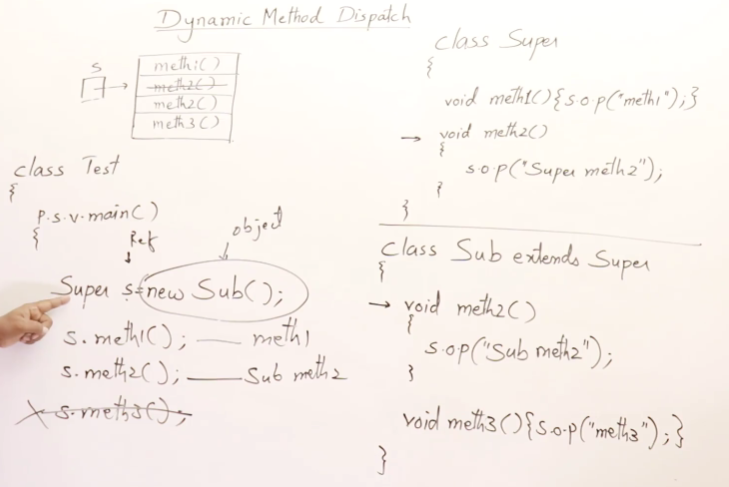 Dynamic Method Dispatch
s
meth1()
meth2()
meth2()
meth3()
class Test
{
p.s.v.main()
{
Ref
object
Super s=new Sub();
s.meth1(); —— meth1
s.meth2(); —— Sub meth2
X s.meth3();
class Super
{
void meth1(){s.o.p("meth1");}
→ void meth2()
{
s.o.p("Super meth2");
}
}
class Sub extends Super
{
→ void meth2()
{
s.o.p("Sub meth2");
}
void meth3(){s.o.p("meth3");}
}